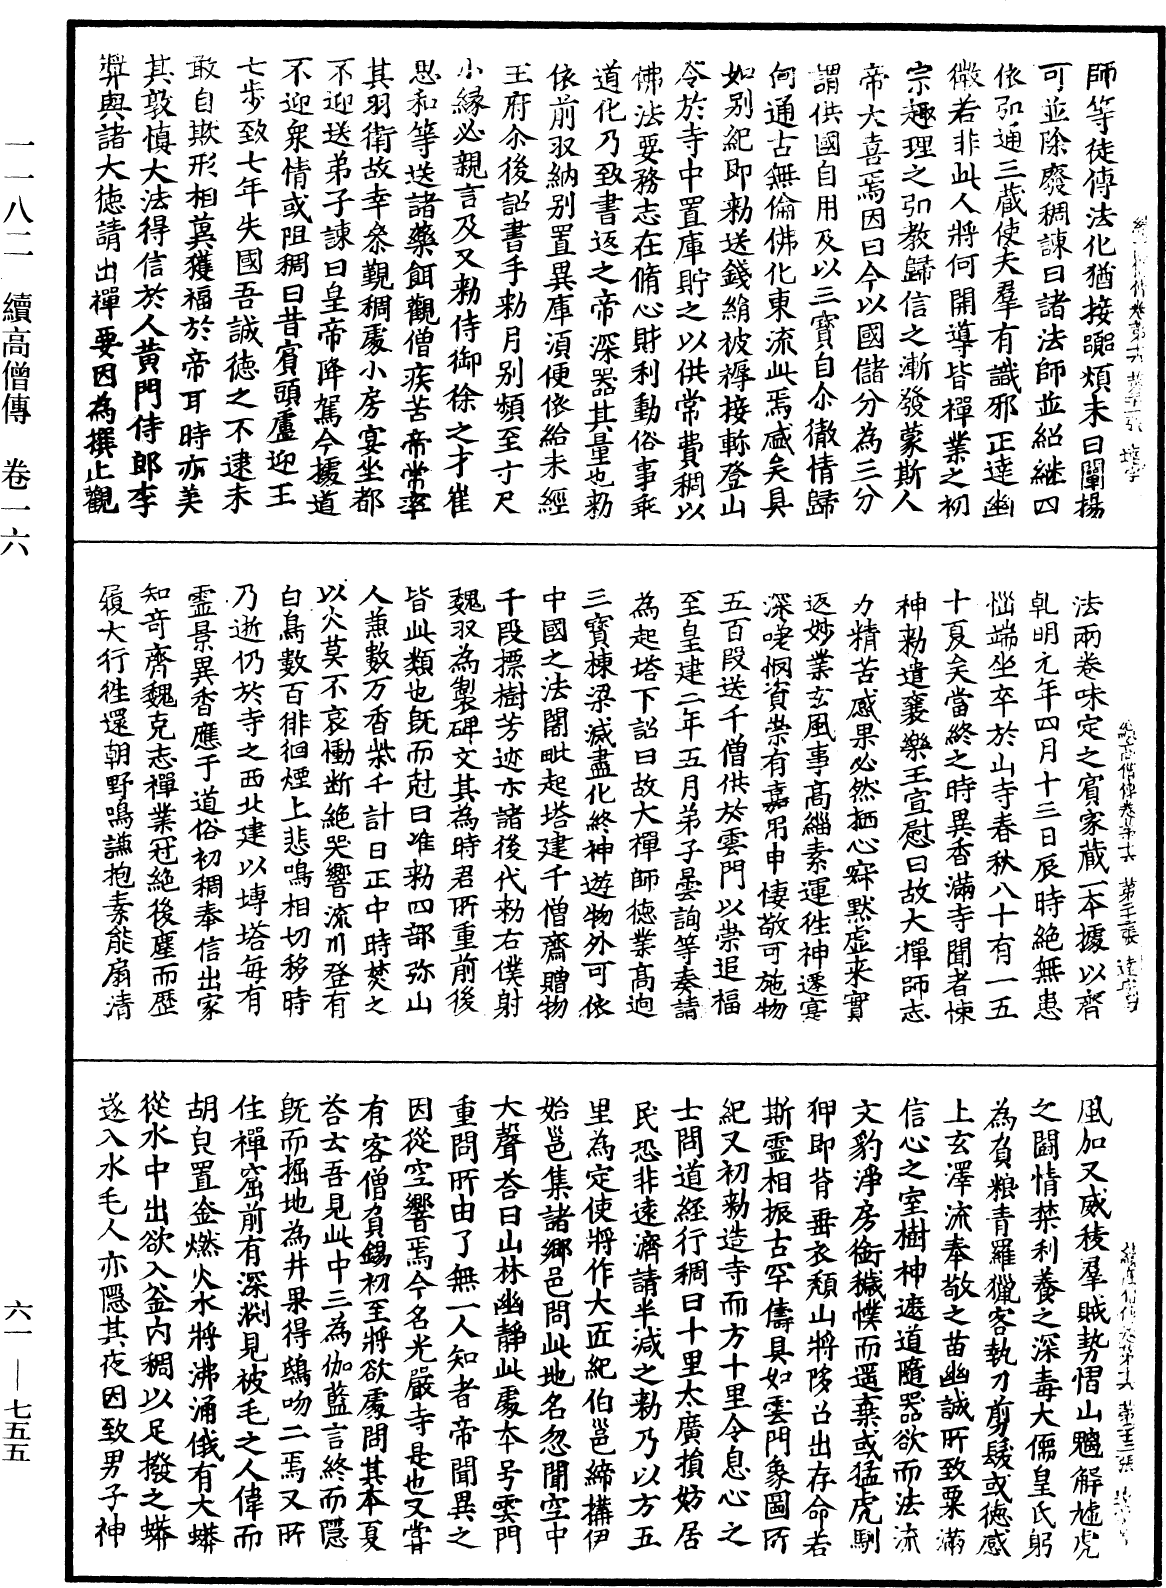 一一八二　續高僧傳　卷一六
師等徒傳法化猶接澆煩未曰闡揚
可並除廢稠諫曰諸法師並紹継四
依弘通三藏使夫羣有識邪正達幽
微若非此人將何開導皆禪業之初
宗趣理之弘教歸信之漸發蒙斯人
帝大喜焉因曰今以國儲分為三分
謂供國自用及以三寶自尒徹情歸
向通古無倫佛化東流此焉盛矣具
如别紀即勑送錢絹被褥接軫登山
令於寺中置庫貯之以供常費稠以
佛法要務志在脩心財利動俗事乖
道化乃致書返之帝深器其量也勑
依前収納别置異庫湏便依給未經
王府尒後詔書手勑月别頻至寸尺
小縁必親言及又勑侍御徐之才崔
思和等送諸藥餌觀僧疾苦帝常率
其羽衛故幸叅覲稠處小房宴坐都
不迎送弟子諫曰皇帝降駕今據道
不迎衆情或阻稠曰昔賔頭盧迎王
七步致七年失國吾誠徳之不逮未
敢自欺形相冀獲福於帝耳時亦美
其敦慎大法得信於人黄門侍郎李
奬與諸大徳請出禪要因為撰止觀
法兩卷味定之賔家藏一本據以齊
乹明元年四月十三日辰時絶無患
惱端坐卒於山寺春秋八十有一五
十夏矣當終之時異香滿寺聞者悚
神勑遣襄樂王宣慰曰故大禪師志
力精苦感果必然栖心寂黙虛来實
返妙業玄風事高緇素運徃神遷寔
深嗟惘資崇有嘉用申悽敬可施物
五百段送千僧供扵雲門以崇追福
至皇建二年五月弟子曇詢等奏請
為起塔下詔曰故大禪師徳業高逈
三寶棟梁滅盡化終神遊物外可依
中國之法闍毗起塔建千僧齋贈物
千段摽樹芳迹示諸後代勑右僕射
魏収為製碑文其為時君所重前後
皆此類也既而尅日准勑四部弥山
人兼數万香柴千計日正中時焚之
以火莫不哀慟断絶哭響流川登有
白鳥數百徘徊煙上悲鳴相切移時
乃逝仍於寺之西北建以塼塔每有
霊景異香應于道俗初稠奉信出家
知竒齊魏克志禪業冠絶後塵而歴
履大行徃還朝野鳴謙抱素能扇清
風加又威稜羣賊勢慴山魑解虓虎
之鬬情禁利養之深毒大儒皇氏躬
為負粮青羅獵客執刀剪鬚或徳感
上玄澤流奉敬之苗幽誠所致粟滿
信心之室樹神遮道隨器欲而法流
文豹淨房銜穢幞而遥棄或猛虎馴
狎即背垂衣頽山將陊召出存命若
斯霊相振古罕儔具如雲門象圖所
紀又初勑造寺而方十里令息心之
士問道経行稠曰十里太廣損妨居
民恐非逺濟請半減之勑乃以方五
里為定使將作大匠紀伯邕締搆伊
始邕集諸郷邑問此地名忽聞空中
大聲荅曰山林幽静此處本号雲門
重問所由了無一人知者帝聞異之
因從空響焉今名光嚴寺是也又甞
有客僧負錫初至將欲處問其本夏
荅云吾見此中三為伽藍言終而隱
既而掘地為井果得鴟吻二焉又所
住禪窟前有深淵見被毛之人偉而
胡皃置釜燃火水將沸涌俄有大蟒
從水中出欲入釜内稠以足撥之蟒
遂入水毛人亦隱其夜因致男子神
六一—七五五